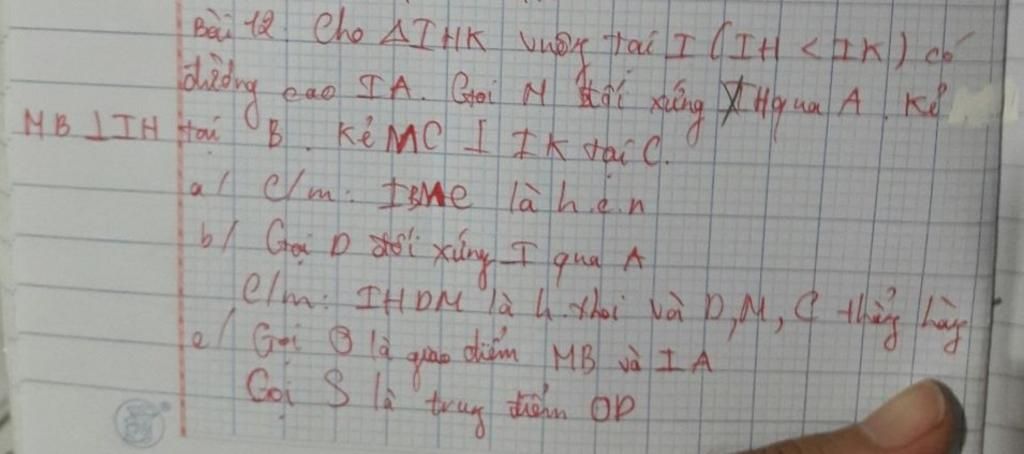 Bài 12. Cho ΔIHK vuông tại I (IH < IK) có
đường cao IA. Gọi M đối xứng H qua A. Kẻ
MB ⊥ IH tại B. Kẻ MC ⊥ IK tại C.
a/ C/m: IBMC là h.c.n
b/ Gọi D đối xứng I qua A
C/m: IHDM là h.thoi và D, M, C thẳng hàng
c/ Gọi O là giao điểm MB và IA
Gọi S là trung điểm OD